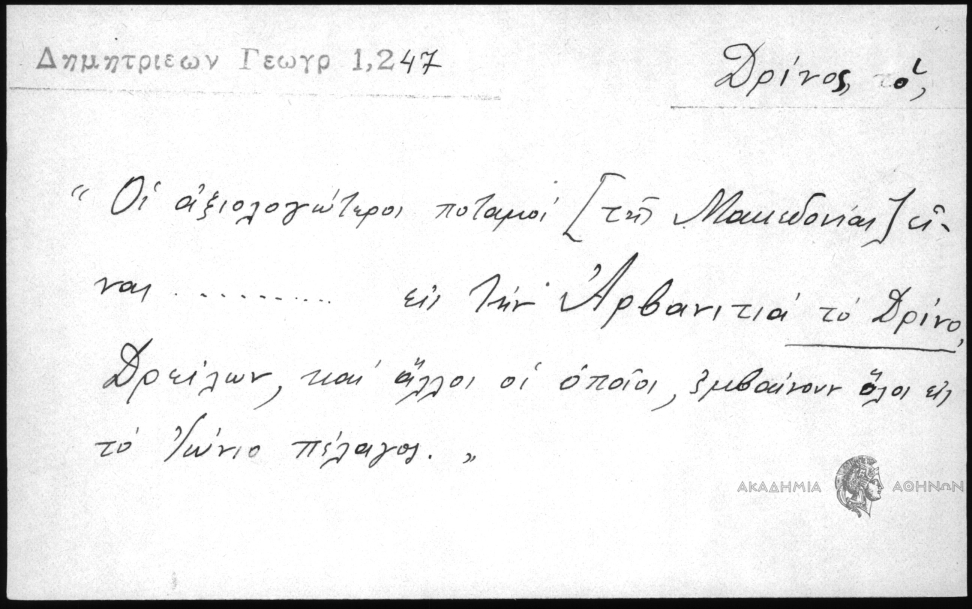 Δημητριεων Γεωγρ 1,247
Δρίνος, τό,
“ Οἱ ἀξιολογώτεροι ποταμοί [τῆς Μακεδονίας] εἶ-
ναι .......... εἰς τήν Ἀρβανιτιά τό Δρίνο,
Δρείλων, καί ἄλλοι οἱ ὁποῖοι, ἐμβαίνουν ὅλοι εἰς
τό Ἰώνιο πέλαγος. „
ΑΚΑΔΗΜΙΑ ΑΘΗΝΩΝ